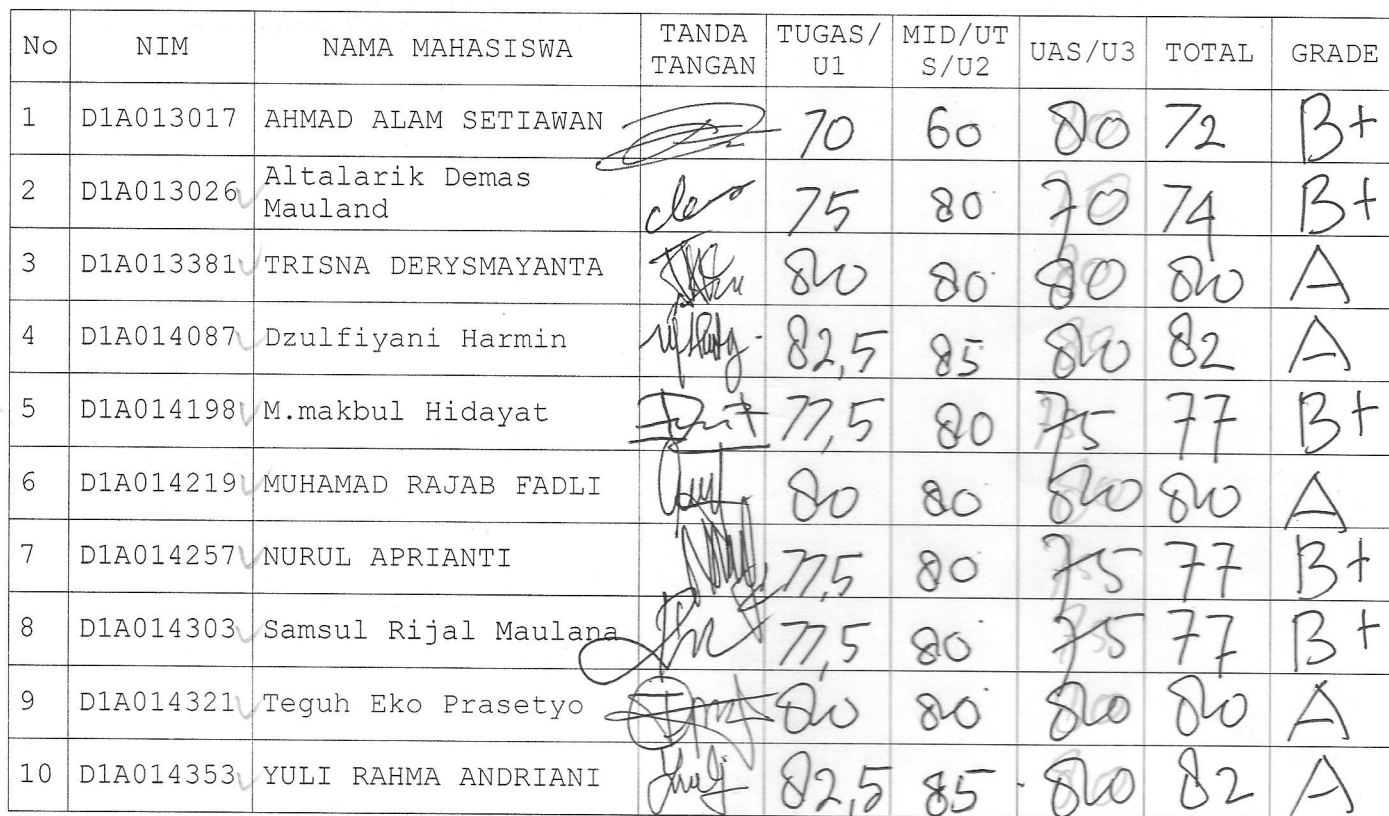 No NIM NAMA MAHASISWA TANDA TANGAN TUGAS/ U1 MID/UT S/U2 UAS/U3 TOTAL GRADE
1 D1A013017 AHMAD ALAM SETIAWAN 70 60 80 72 B+
2 D1A013026 Altalarik Demas Mauland 75 80 70 74 B+
3 D1A013381 TRISNA DERYSMAYANTA 80 80 80 80 A
4 D1A014087 Dzulfiyani Harmin 82,5 85 80 82 A
5 D1A014198 M.makbul Hidayat 77,5 80 75 77 B+
6 D1A014219 MUHAMAD RAJAB FADLI 80 80 80 80 A
7 D1A014257 NURUL APRIANTI 77,5 80 75 77 B+
8 D1A014303 Samsul Rijal Maulana 77,5 80 75 77 B+
9 D1A014321 Teguh Eko Prasetyo 80 80 80 80 A
10 D1A014353 YULI RAHMA ANDRIANI 82,5 85 80 82 A